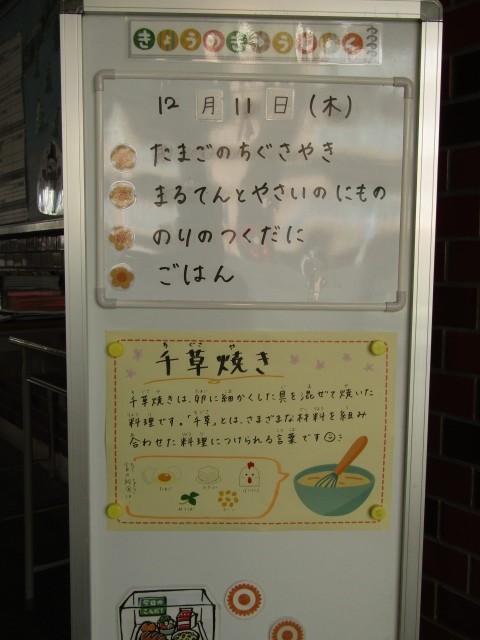 きょうのきゅうしょく
12月11日(木)
たまごのちぐさやき
まるてんとやさいのにもの
のりのつくだに
ごはん
千草焼き
千草焼きは、卵に細かくした具を混ぜて焼いた
料理です。「千草」とは、さまざまな材料を組み
合わせた料理につけられる言葉です
今日の
こんだて